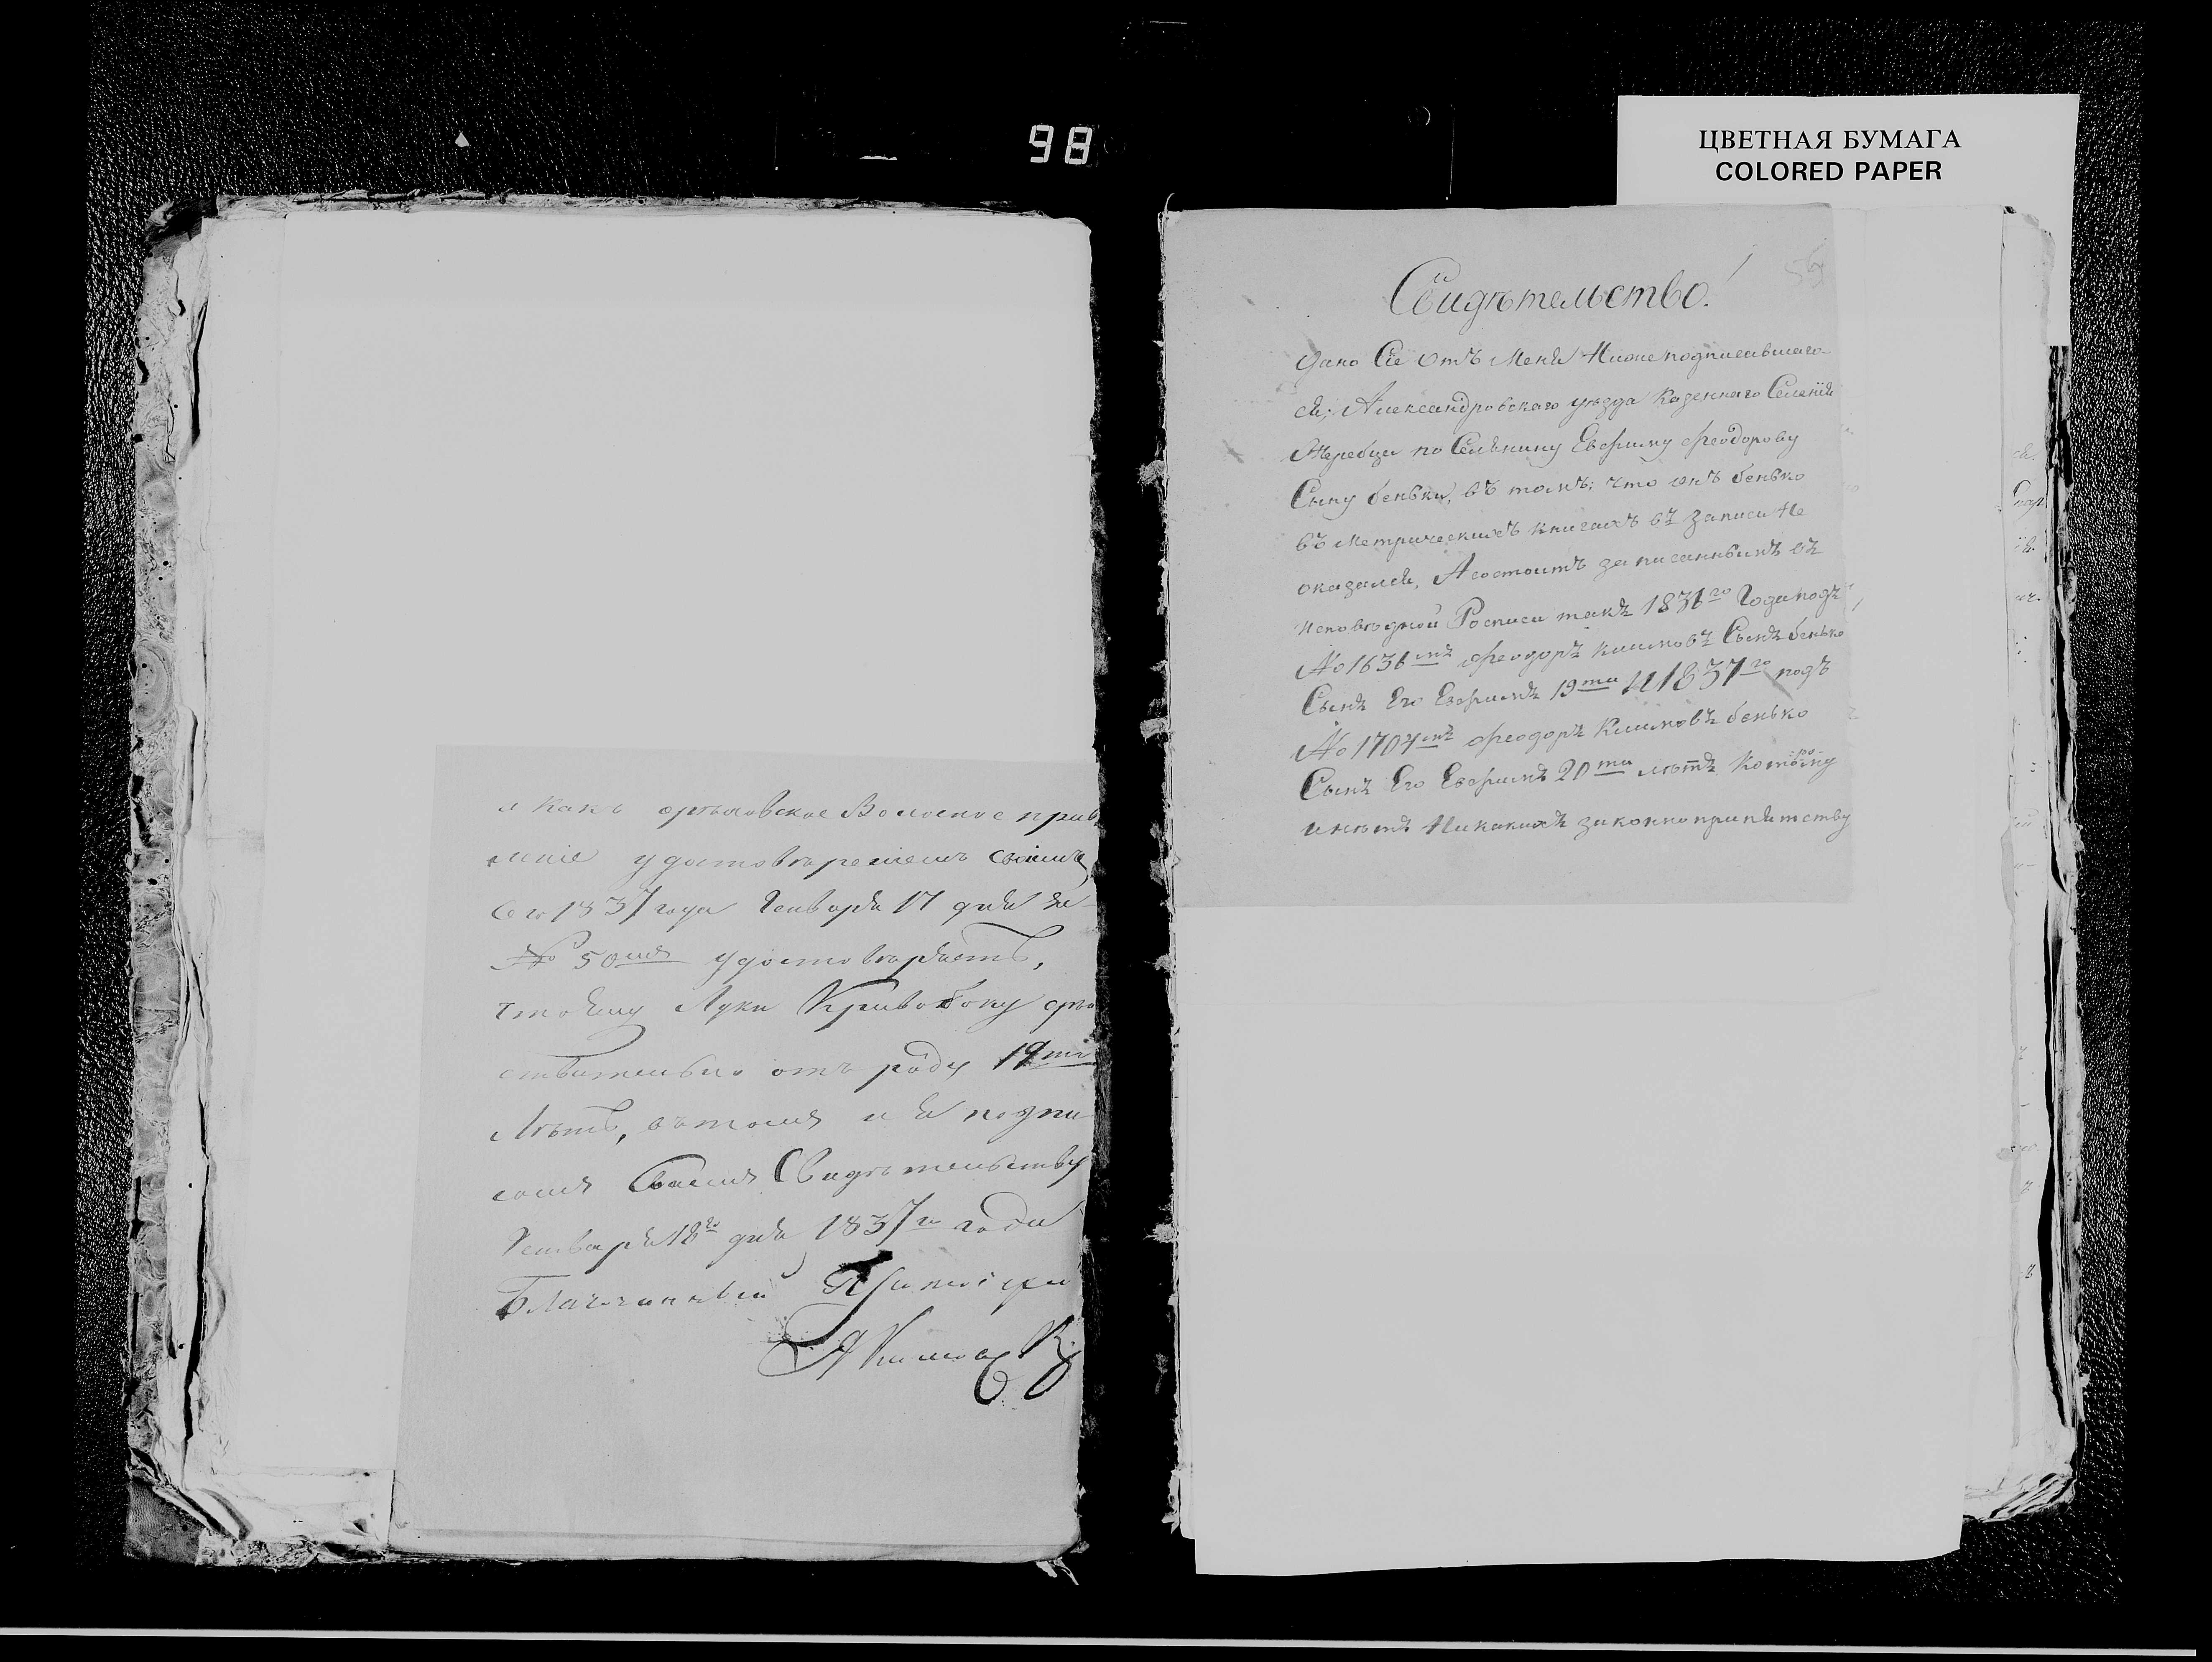 98
ЦВЕТНАЯ БУМАГА
COLORED PAPER
а какъ орѣховское Волосное прав
ленiе удостовѣренiемъ своимъ
Сего 1837 года Генваря 17 дня за
№ 50мъ удостовѣряетъ,
что ему Луки Кривобоку дѣй
ствительно отъ роду 19ть
Лѣтъ, въ томъ и я подпи
сомъ Своимъ Свидѣтельствую
Генваря 18го дня 1837го года
Благочинный
56
Свидѣтельство!
Дано Сiе Отъ Меня Нижеподписавшаго-
ся; Александровскаго уѣзда Казеннаго Селенiя
Жеребца по Селянину Евфиму Феодорову
Сыну бенькѣ, въ томъ; что онъ бенько
въ Метрическихъ книгахъ въ записи Не
оказался, А состоитъ записаннымъ въ
исповѣдной Росписи такъ 1836го Года подъ
№ 1636мъ Феодоръ Климовъ Сынъ бенько
Сынъ Его Евфимъ 19ти И 1837го подъ
№ 1704мъ Феодоръ Климовъ бенько
Сынъ Его Евфимъ 20ти лѣтъ Которому
инѣтъ Никакихъ законнопрепятству